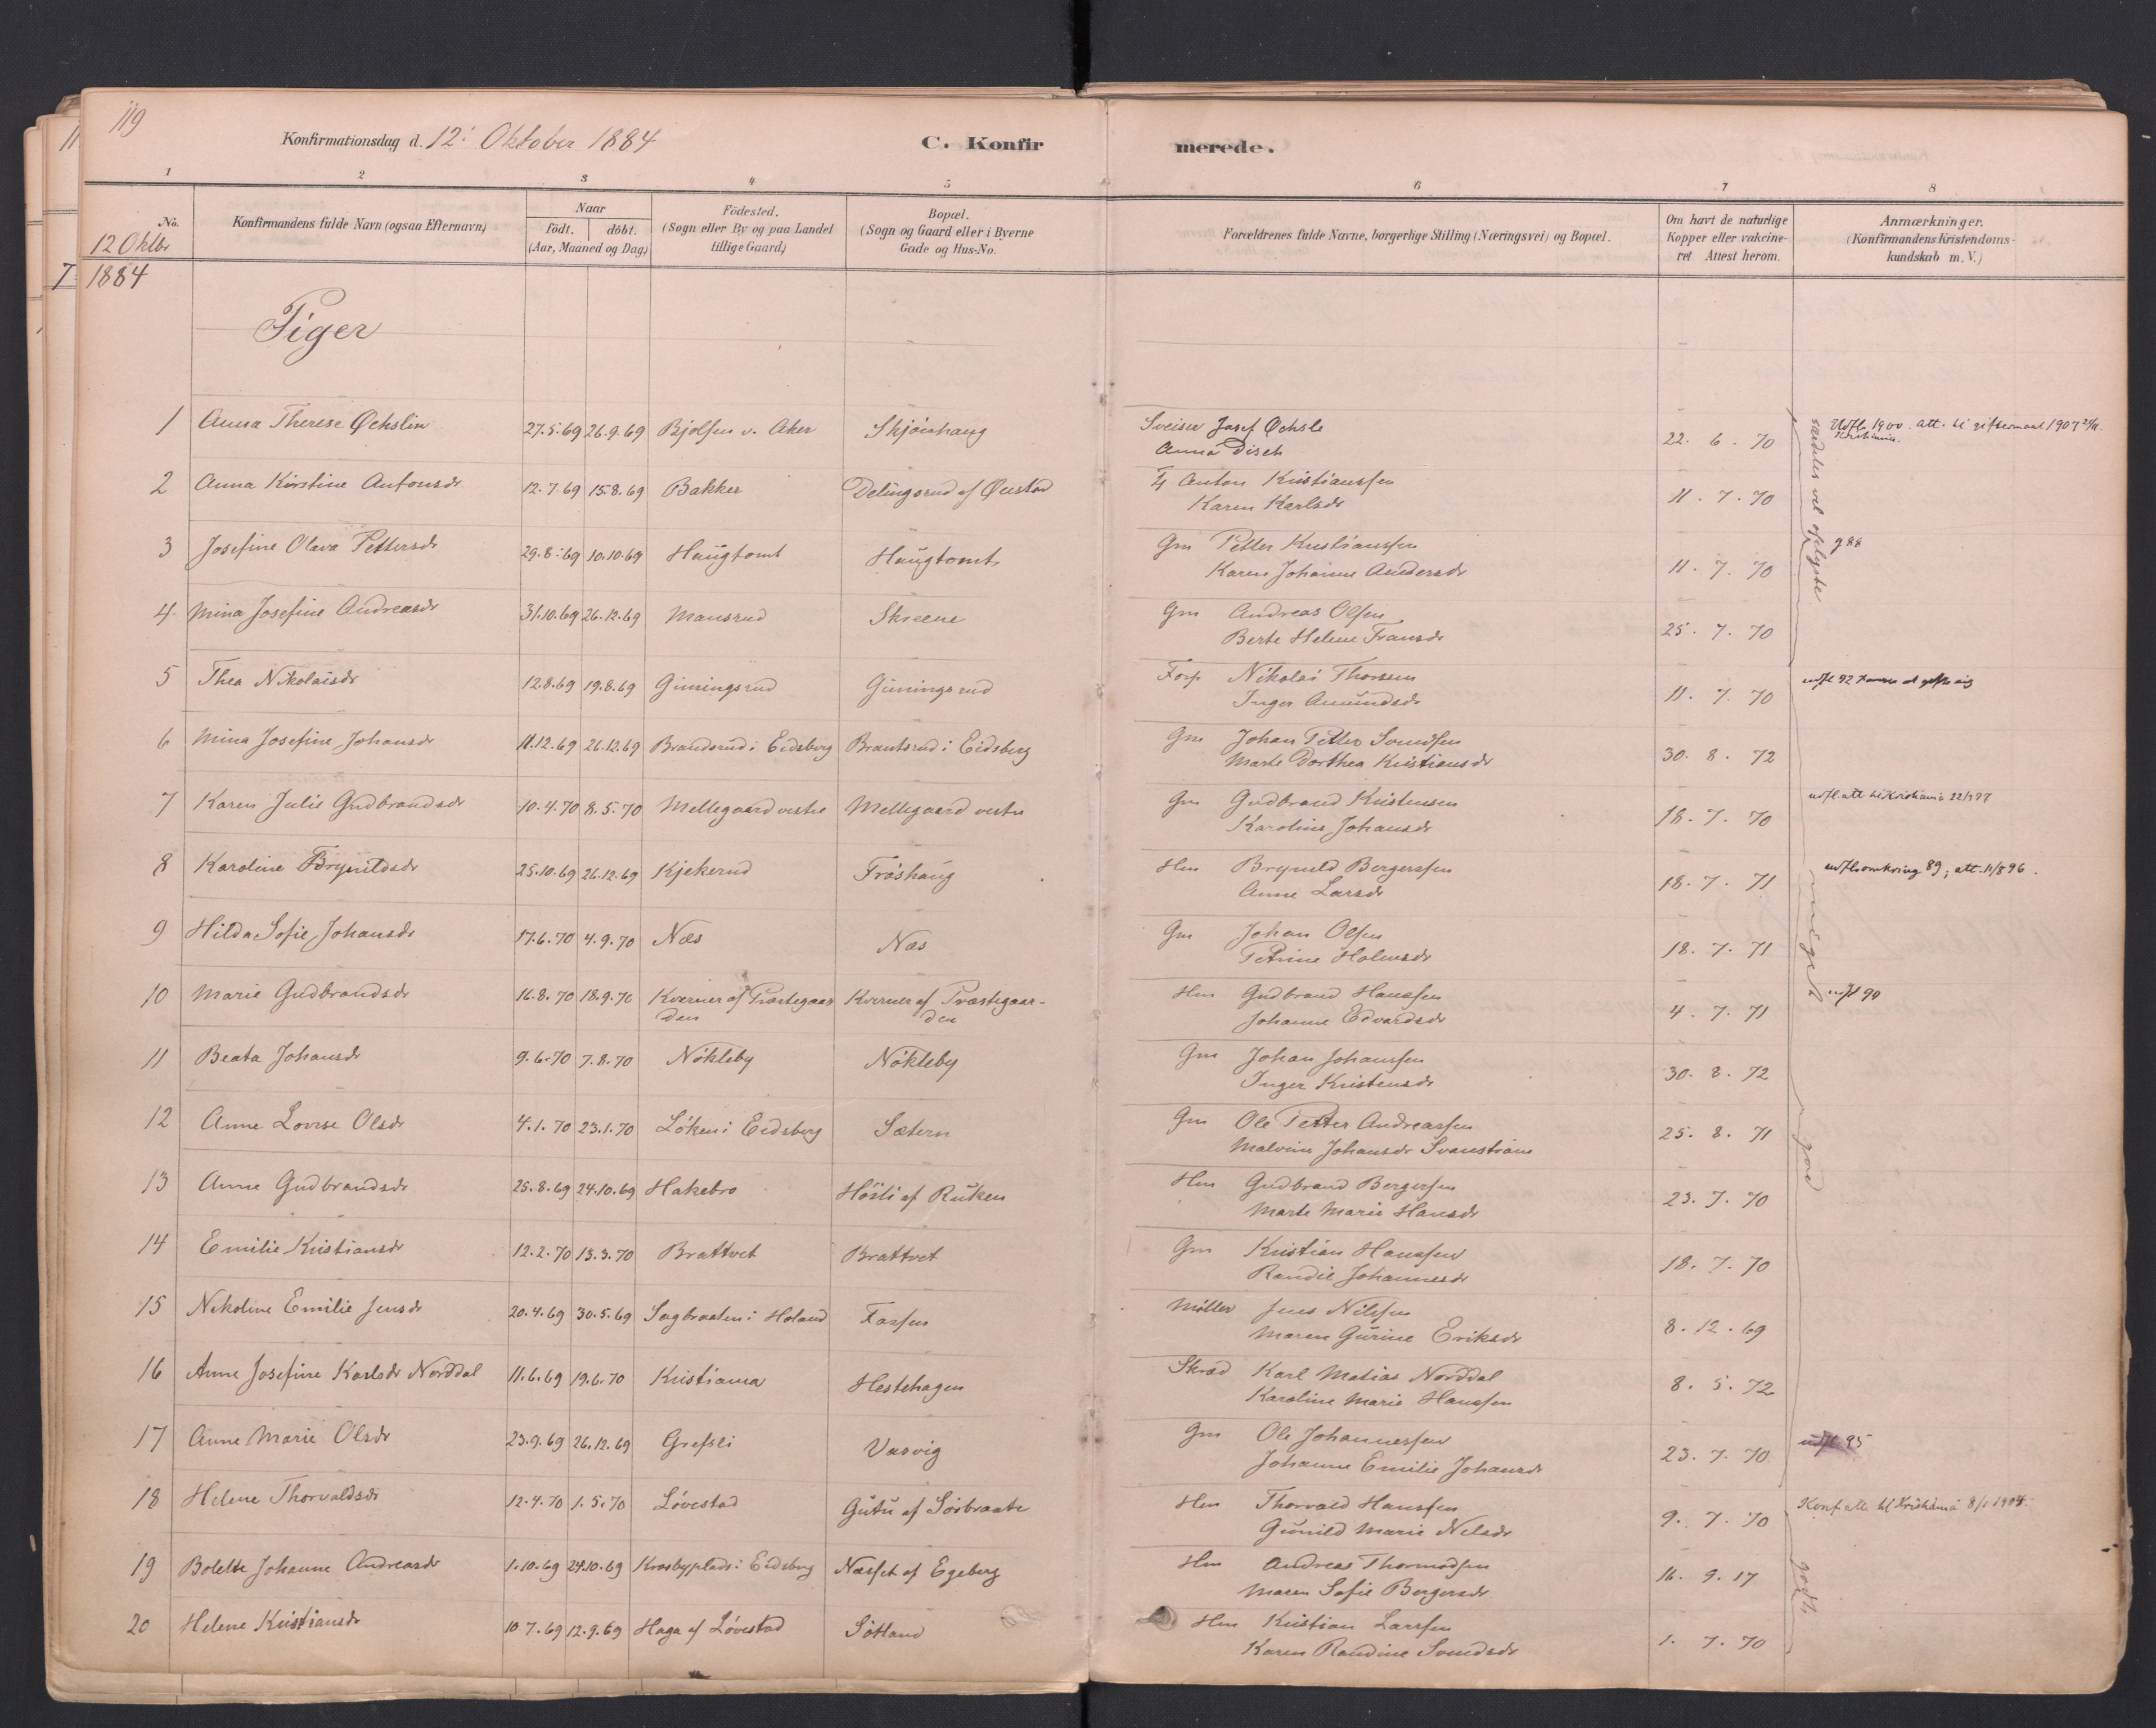 119
Konfirmationsdag d. 12: Oktober 1884
C. Konfir merede.
1 2 3 4 5 6 7 8
No. Konfirmandens fulde Navn (ogsaa Efternavn)
Naar
födt. döbt.
(Aar, Maaned og Dag)
Födested.
(Sogn eller By og paa Landet
tillige Gaard)
Bopæl.
(Sogn og Gaard eller i Byerne
Gade og Hus-No.
Forældrenes fulde Navne, borgerlige Stilling (Næringsvei) og Bopæl.
Om havt de naturlige
Kopper eller vakcine-
ret Attest herom.
Anmærkninger.
(Konfirmandens Kristendoms-
kundskab m. V.)
12 Oktbr
1884
Piger
1 Anna Therese Øchslin 27.5.69 26.9.69 Bjølsen v. Aker Skjønhaug Sveiser Josef Øchsle 22. 6. 70 Udfl. 1900. att. til giftermaal 1907
Anna Disch Kristiania.
2 Anna Kirstine Antonsdr 12.7.69 15.8.69 Bakker Delingsrud af Ønstad Anton Kristianssen 11. 7. 70
Karen Karlsdr
særdeles vel oplyste
3 Josefine Olava Pettersdr 29.8.69 10.10.69 Haugtomt Haugtomt Gm Petter Kristianssen 11. 7. 70
Karen Johanne Andersdr
4 Mina Josefine Andreasdr 31.10.69 26.12.69 Mansrud Skreene Gm Andreas Olsen 25. 7. 70
Berte Helene Fransdr
5 Thea Nikolaisdr 12.8.69 19.8.69 Gimingsrud Gimingsrud Forp Nikolai Thorssen 11. 7. 70 udfl 92
Inger Amundsdr
6 Mina Josefine Johansdr 11.12.69 26.12.69 Brandsrud i Eidsberg Brantsrud i Eidsberg Gm Johan Petter Svendsen 30. 8. 72
Marte Dorthea Kristiansdr
7 Karen Julie Gudbrandsdr 10.4.70 8.5.70 Mellegaard vestre Mellegaard vestre Gm Gudbrand Kristensen 18. 7. 70 udfl. att til Kristiania 22/3 97
Karoline Johansdr
8 Karoline Brynildsdr 25.10.69 26.12.69 Kjekerud Fröshaug Hm Brynild Bergerssen 18. 7. 71 udfl. omkring 89, att. 11/8 96.
Anne Larsdr
meget
9 Hilda Sofie Johansdr 17.6.70 4.9.70 Næs Næs Gm Johan Olsen 18. 7. 71
Petrine Holmsdr
10 Marie Gudbrandsdr 16.8.70 18.9.70 Kverner af Præstegaar Kverner af Præstegaar- Hm Gudbrand Hanssen 4. 7. 71 udfl 90
den den Johanne Edvardsdr
11 Beata Johansdr 9.6.70 7.8.70 Nökleby Nökleby Gm Johan Johanssen 30. 8. 72
Inger Kristensdr
12 Anne Lovise Olsdr 4.1.70 23.1.70 Löken i Eidsberg Sætern Gm Ole Petter Andreassen 25. 8. 71
Malvine Johansdr Svanström
god
13 Anne Gudbrandsdr 25.8.69 24.10.69 Hakebro Hösli af Ruken Hm Gudbrand Bergersen 23. 7. 70
Marte Marie Hansdr
14 Emilie Kristiansdr 12.2.70 13.3.70 Brattvet Brattvet Gm Kristian Hanssen 18. 7. 70
Randie Johannesdr
15 Nikoline Emilie Jensdr 20.4.69 30.5.69 Sagbraaten i Høland Fossen Möller Jens Nilssen 8. 12. 69
Maren Gurine Eriksdr
16 Anne Josefine Karlsdr Norddal 11.6.69 19.6.70 Kristiania Hestehagen Skræd Karl Matias Norddal 8. 5. 72
Karoline Marie Hanssen
17 Anne Marie Olsdr 23.9.69 26.12.69 Grefsli Vasvig Gm Ole Johannessen 23. 7. 70 udfl. 95
Johanne Emilie Johansdr
18 Helene Thorvaldsdr 12.4.70 1.5.70 Lövestad Gutu af Sörbraate Hm Thorvald Hanssen 9. 7. 70 Konf. att til Kristiania 8/1 1904.
Gunild Marie Nilsdr
19 Bolette Johanne Andreasdr 1.10.69 24.10.69 Krosbyplads i Eidsberg Næsset af Egeberg Hm Andreas Thormodsen 16. 9. 17
Maren Sofie Bergersdr
godt
20 Helene Kristiansdr 10.7.69 12.9.69 Haga af Lövestad Sötland Hm Kristian Larssen 1. 7. 70
Karen Randine Svendsdr